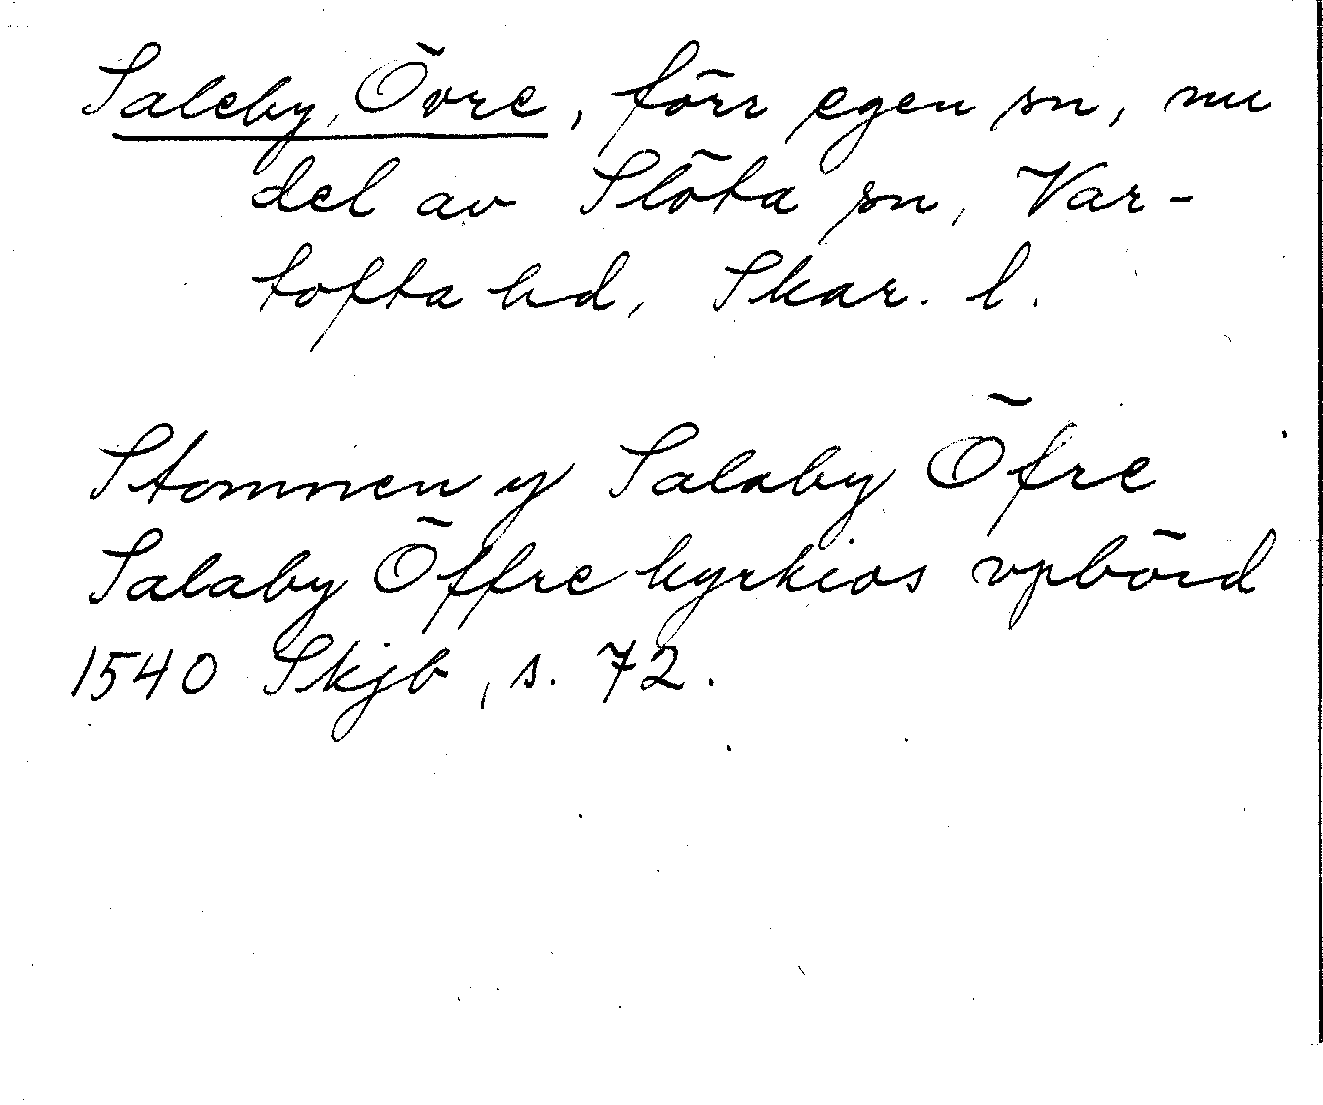 Saleby, Övre, förr egen sn, nu
del av Slöta sn, Var-
tofta hd, Skar. l.
Stommen y Salaby Öfre
Salaby Öffre kyrkios vpbörd
1540 Skjb, s. 72.